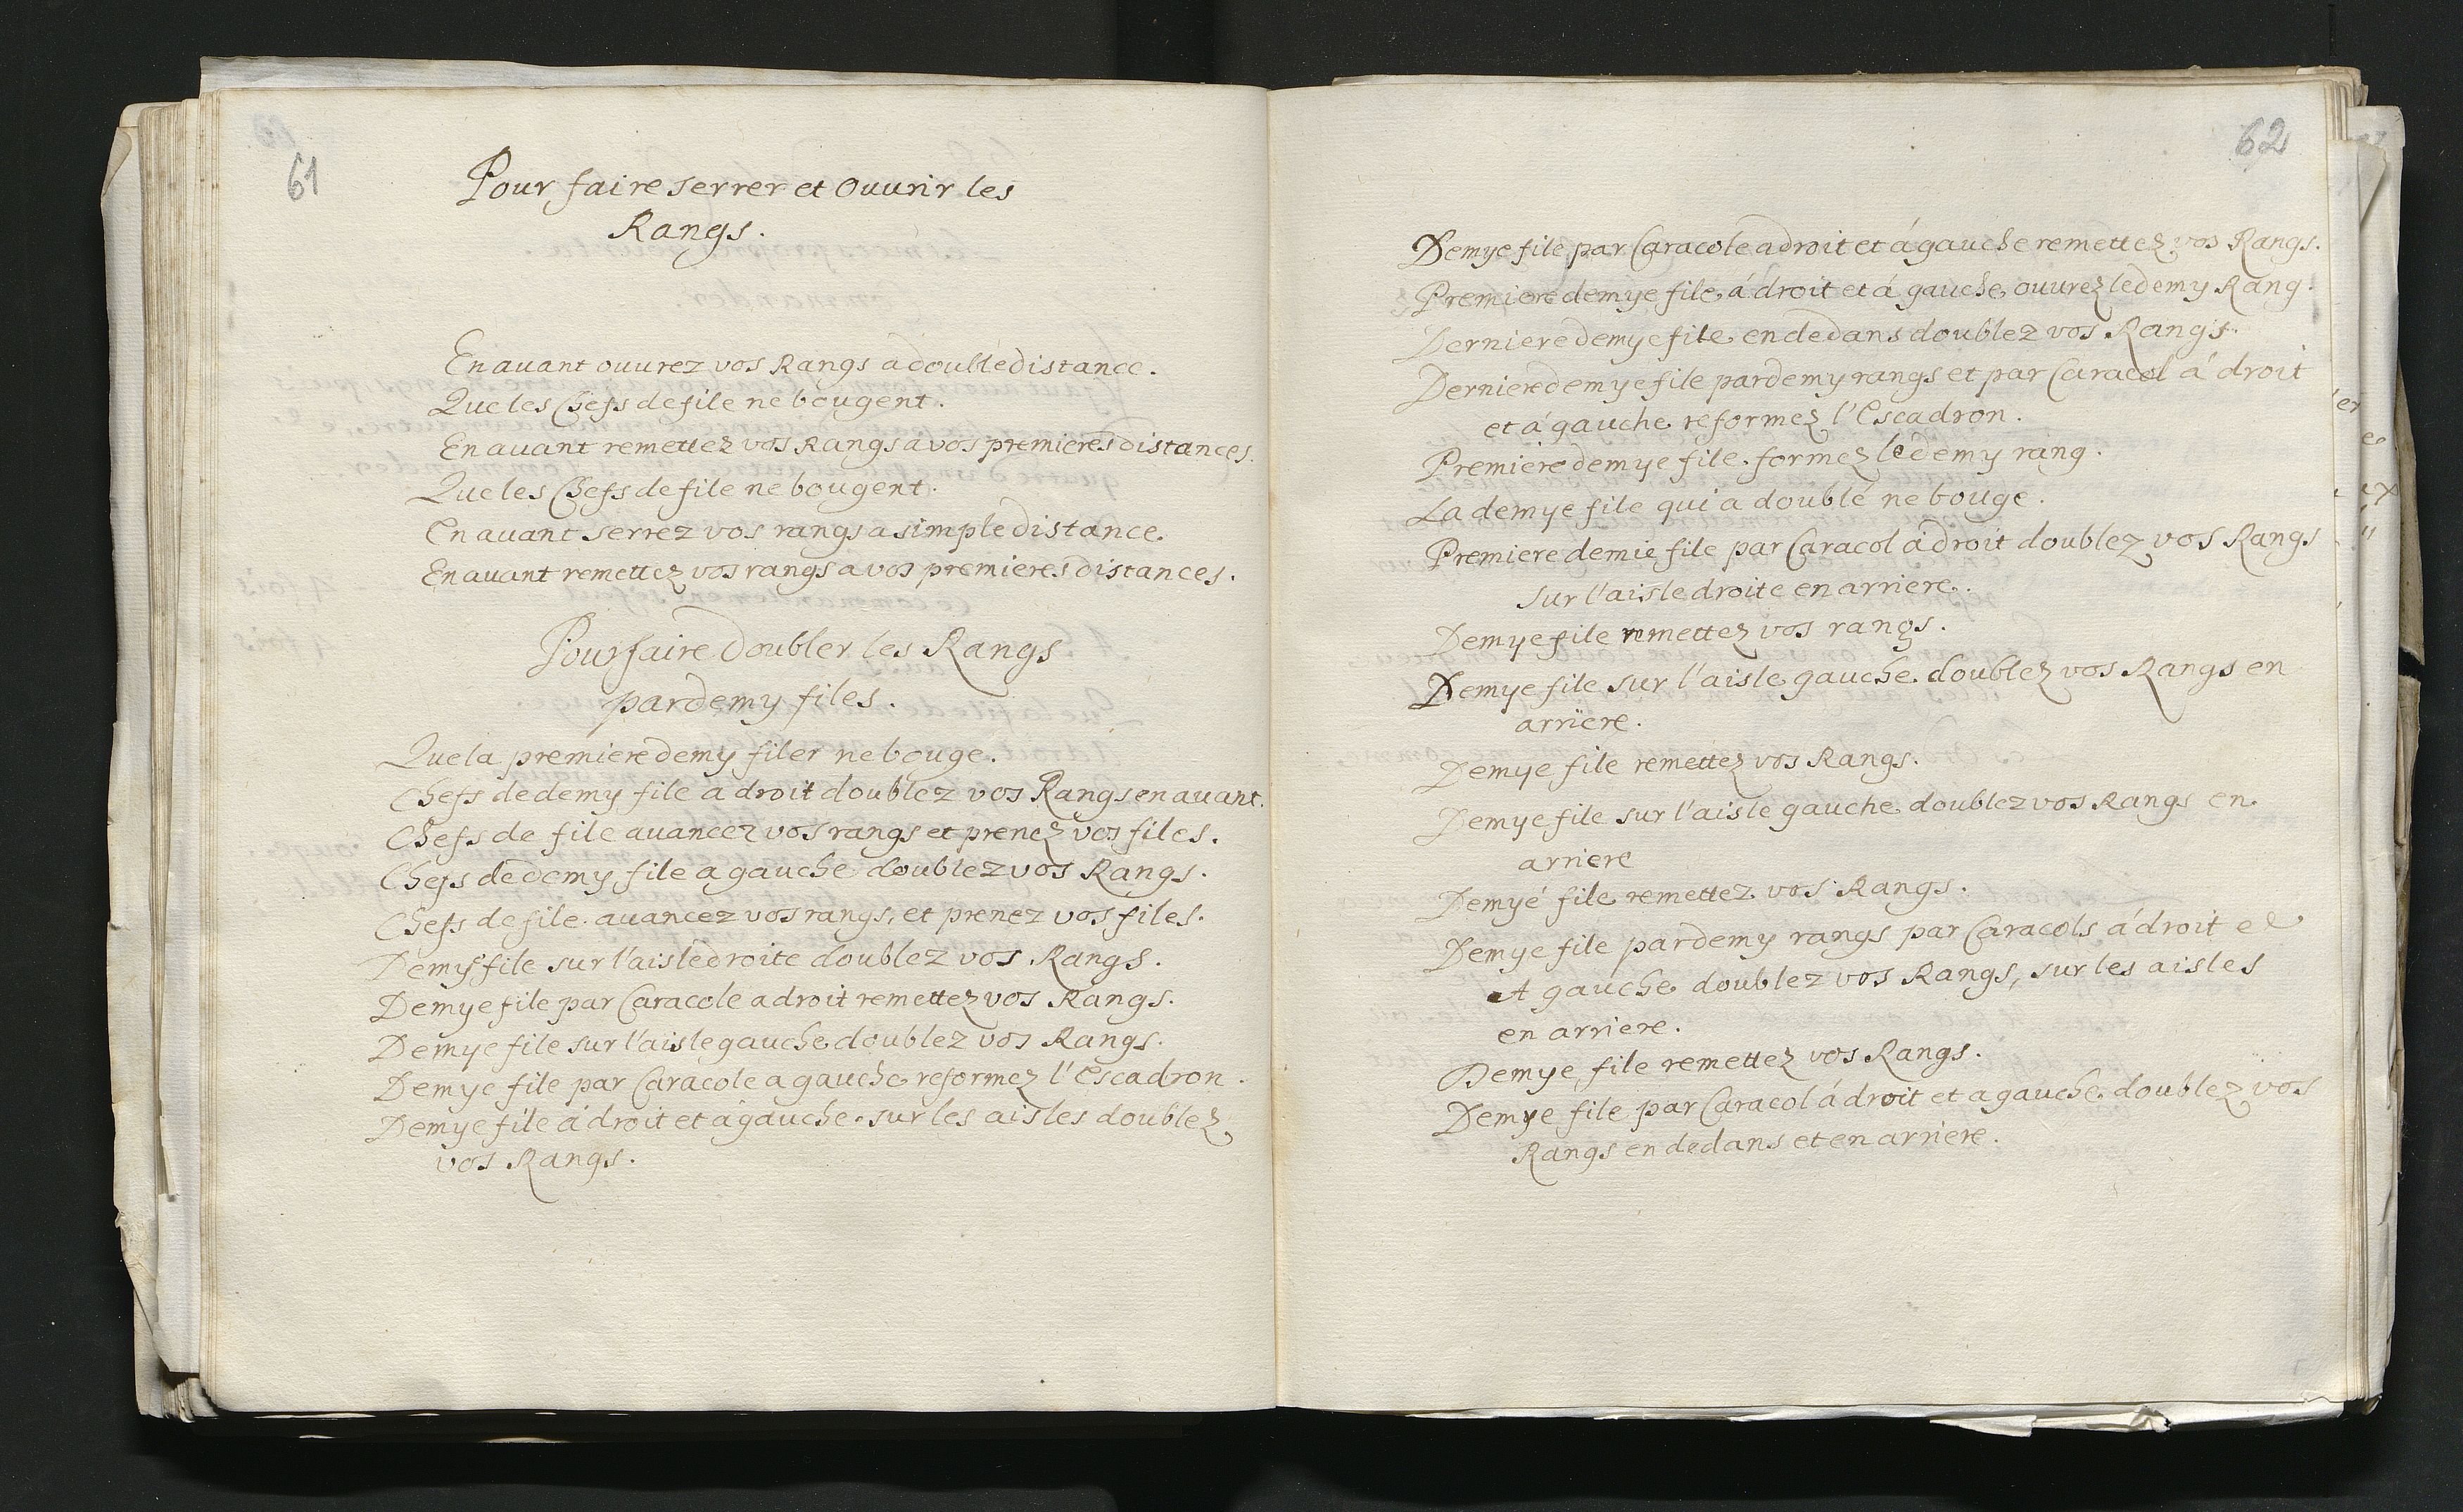 61
Pour faire serrer et Ouurir les
Rangs.
En auant ouurez vos Rangs a double distance.
Que les Chefs de file ne bougent.
En auant remettez vos Rangs a vos premieres distances.
Que les Chefs de file ne bougent.
En auant serrez vos rangs a simple distance.
En auant remettez vos rangs a vos premieres distances.
Pour faire doubler les Rangs
par demy files.
Que la premiere demy filer ne bouge.
Chefs de demy file a droit doublez vos Rangs en auant.
Chefs de file auancez vos rangs et prenez vos files.
Chefs de demy file a gauche doublez vos Rangs.
Chefs de file auancez vos rangs, et prenez vos files.
Demy file sur l'aisle droite doublez vos Rangs.
Demye file par Caracole a droit remettez vos Rangs.
Demye file sur l'aisle gauche doublez vos Rangs.
Demye file par Caracole a gauche reformez l'Escadron.
Demye file á droit et á gauche sur les aisles doublez
vos Rangs.
62
Demye file par Caracole a droit et á gauche remettez vos Rangs.
Premiere demye file á droit et á gauche ouurez le demy Rang.
Derniere demye file en dedans doublez vos Rangs.
Derniere demye file par demy rangs et par Caracol á droit
et á gauche reformez l'Escadron.
Premiere demye file formez le demy rang.
La demye file qui a doublé ne bouge.
Premiere demie file par Caracol á droit doublez vos Rangs
sur l'aisle droite en arriere.
Demye file remettez vos rangs.
Demye file sur l'aisle gauche doublez vos Rangs en
arriere.
Demye file remettez vos Rangs.
Demye file sur l'aisle gauche doublez vos Rangs en
arriere
Demye file remettez vos Rangs.
Demye file par demy rangs par Caracols á droit et
A gauche doublez vos Rangs, sur les aisles
en arriere.
Demye file remettez vos Rangs.
Demye file par Caracol á droit et a gauche doublez vos
Rangs en dedans et en arriere.